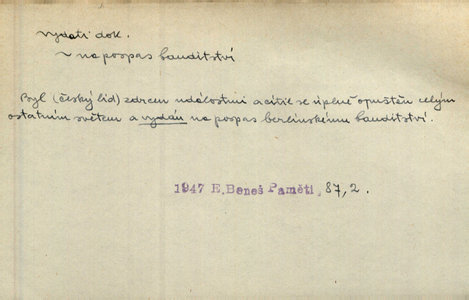 vydati dok.
~ na pospas banditství
Byl (český lid) zdrcen událostmi a cítil se úplně opuštěn celým
ostatním světem a vydán na pospas berlínskému banditství.
1947 E. Beneš Paměti, 87,2.